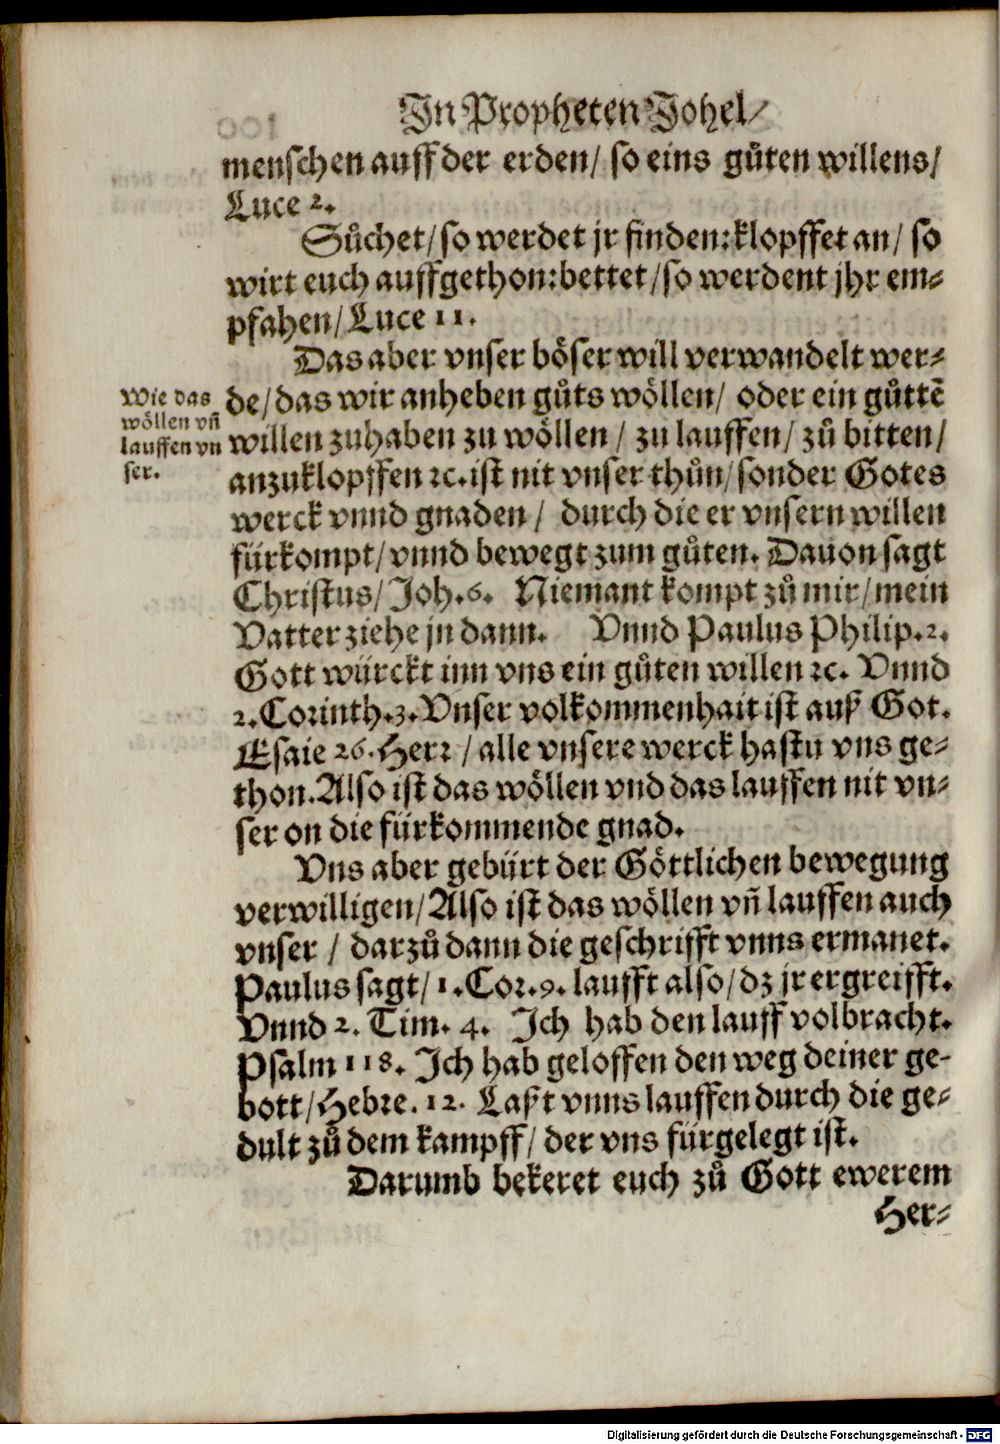 In Propheten Johel/
menschen auff der erden/ so eins gůten willens/
Luce 2.
Sůchet/ so werdet jr finden: klopffet an/ so
wirt euch auffgethon: bettet/ so werdent jhr em⸗
pfahen/ Luce 11.
Das aber vnser böser will verwandelt wer⸗
de/ das wir anheben gůts wöllen/ oder ein gůttē
willen zuhaben zu wöllen/ zu lauffen/ zů bitten/
anzuklopffen ꝛc. ist nit vnser thůn/ sonder Gotes
werck vnnd gnaden/ durch die er vnsern willen
fürkompt/ vnnd bewegt zum gůten. Dauon sagt
Christus/ Joh. 6. Niemant kompt zů mir/ mein
Vatter ziehe jn dann. Vnnd Paulus Philip. 2.
Gott würckt inn vns ein gůten willen ꝛc. Vnnd
2. Corinth. 3. Vnser volkommenhait ist auß Got.
Esaie 26. Herr/ alle vnsere werck hastu vns ge⸗
thon. Also ist das wöllen vnd das lauffen nit vn⸗
ser on die fürkommende gnad.
Wie das
wöllen vñ
lauffen vn
ser.
Vns aber gebürt der Göttlichen bewegung
verwilligen/ Also ist das wöllen vñ lauffen auch
vnser/ darzů dann die geschrifft vnns ermanet.
Paulus sagt/ 1. Cor. 9. laufft also/ dz jr ergreifft.
Vnnd 2. Tim. 4. Ich hab den lauff volbracht.
Psalm 118. Ich hab geloffen den weg deiner ge⸗
bott/ Hebre. 12. Laßt vnns lauffen durch die ge⸗
dult zů dem kampff/ der vns fürgelegt ist.
Darumb bekeret euch zů Gott ewerem
Her⸗
Digitalisierung gefördert durch die Deutsche Forschungsgemeinschaft - DFG